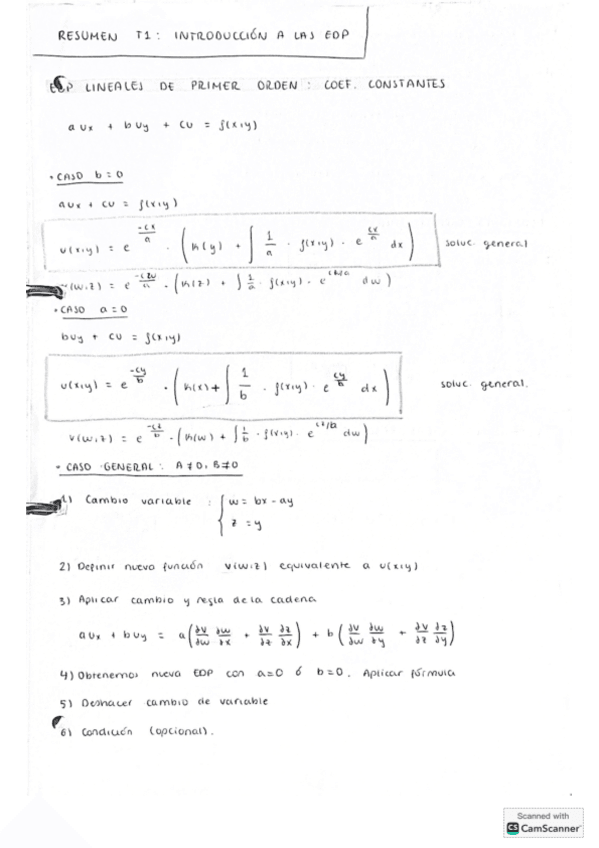 RESUMEN T1: INTRODUCCIÓN A LAS EDP
EDP LINEALES DE PRIMER ORDEN: COEF. CONSTANTES
a ux + b uy + cu = f(x,y)
• CASO b=0
aux + cu = f(x,y)
u(x,y) = e^(-cx/a) · (K(y) + ∫ 1/a · f(x,y) · e^(cx/a) dx) soluc. general
v(w,z) = e^(-cw/a) · (K(z) + ∫ 1/a · f(x,y) · e dw)
• CASO a=0
buy + cu = f(x,y)
u(x,y) = e^(-cy/b) · (K(x) + ∫ 1/b · f(x,y) · e^(cy/b) dx) soluc. general.
v(w,z) = e^(-cz/b) · (K(w) + ∫ 1/b · f(x,y) · e^(cz/b) dw)
• CASO GENERAL: A≠0, B≠0
1) Cambio variable : { w = bx - ay
z = y
2) Definir nueva función v(w,z) equivalente a u(x,y)
3) Aplicar cambio y regla de la cadena
aux + buy = a(∂v/∂w ∂w/∂x + ∂v/∂z ∂z/∂x) + b(∂v/∂w ∂w/∂y + ∂v/∂z ∂z/∂y)
4) Obtenemos nueva EDP con a=0 ó b=0. Aplicar fórmula
5) Deshacer cambio de variable
6) Condición (opcional).
Scanned with
CS CamScanner